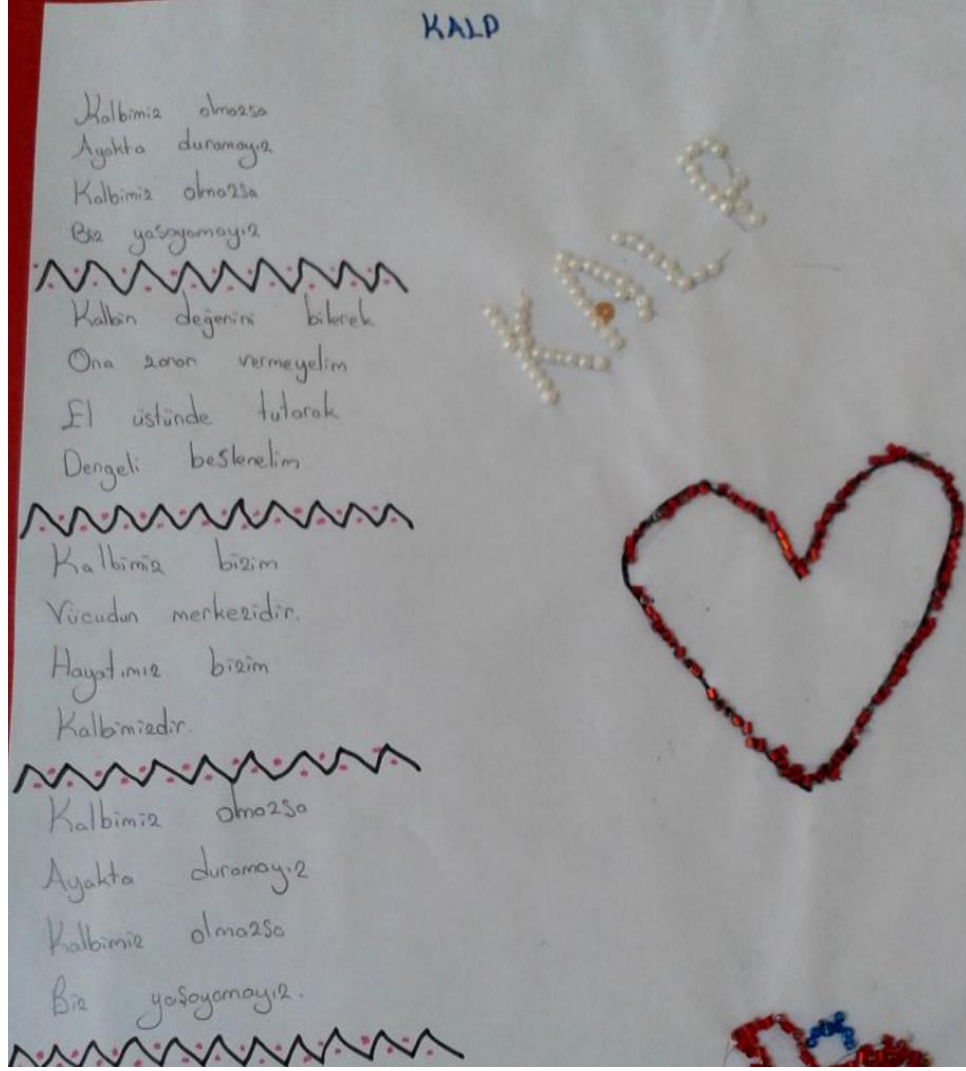 KALP
Kalbimiz olmazsa
Ayakta duramayız
Kalbimiz olmazsa
Biz yaşayamayız
Kalbin değenini bilerek
Ona zarar vermeyelim
El üstünde tutarak
Dengeli beslenelim
Kalbimiz bizim
Vücudun merkezidir.
Hayatımız bizim
Kalbimizdir.
Kalbimiz olmazsa
Ayakta duramayız
Kalbimiz olmazsa
Biz yaşayamayız.
KALP